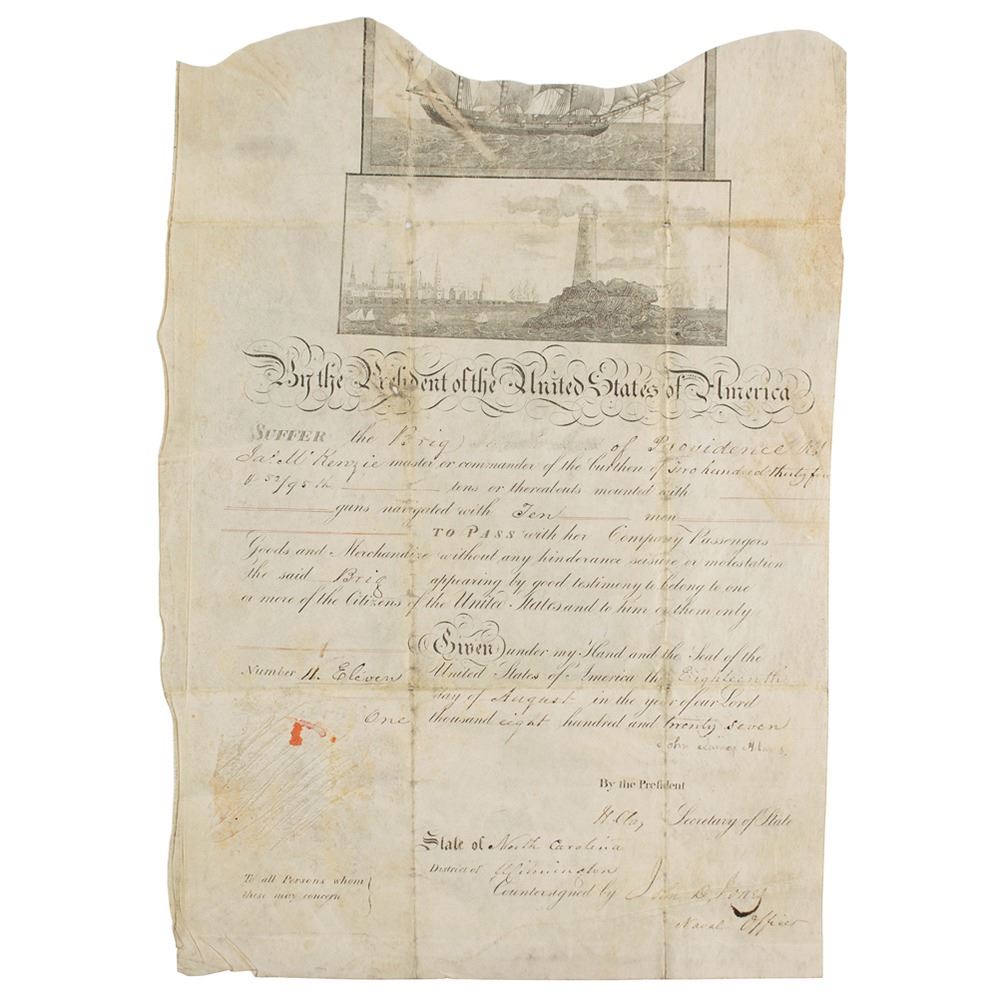 By the President of the United States of America
SUFFER the Brig of Providence R.I.
Jas. McKenzie master or commander of the burthen of Two hundred thirty four
& 52/95th tons or thereabouts mounted with
guns navigated with Ten men
TO PASS with her Company Passengers
Goods and Merchandize without any hinderance seisure or molestation
the said Brig appearing by good testimony to belong to one
or more of the Citizens of the United States and to him or them only
Given under my Hand and the Seal of the
Number 11. Eleven United States of America the Eighteenth
day of August in the year of our Lord
One thousand eight hundred and twenty seven
John Quincy Adams.
By the President
H Clay Secretary of State
State of North Carolina
District of Wilmington
To all Persons whom
these may concern
Countersigned by John D. Jones
Naval Officer